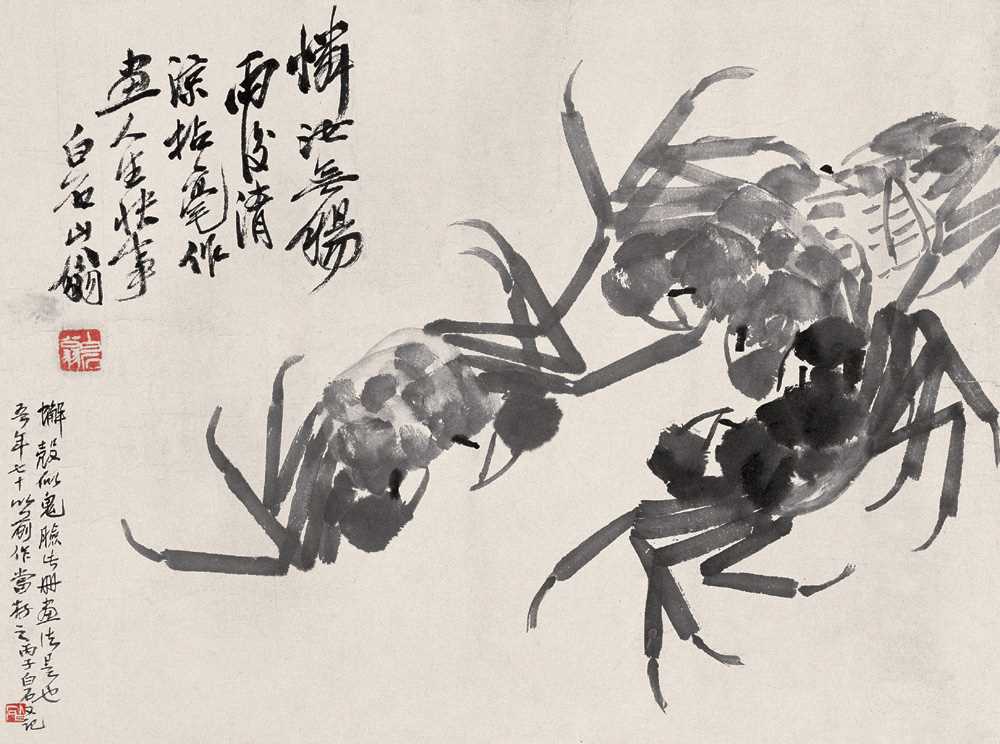 憐汝無腸
雨後清
涼拈毫作
畫人生快事
白石山翁
蠏殼似鬼臉此冊畫法是也
吾年七十以前作當存之丙子白石又記